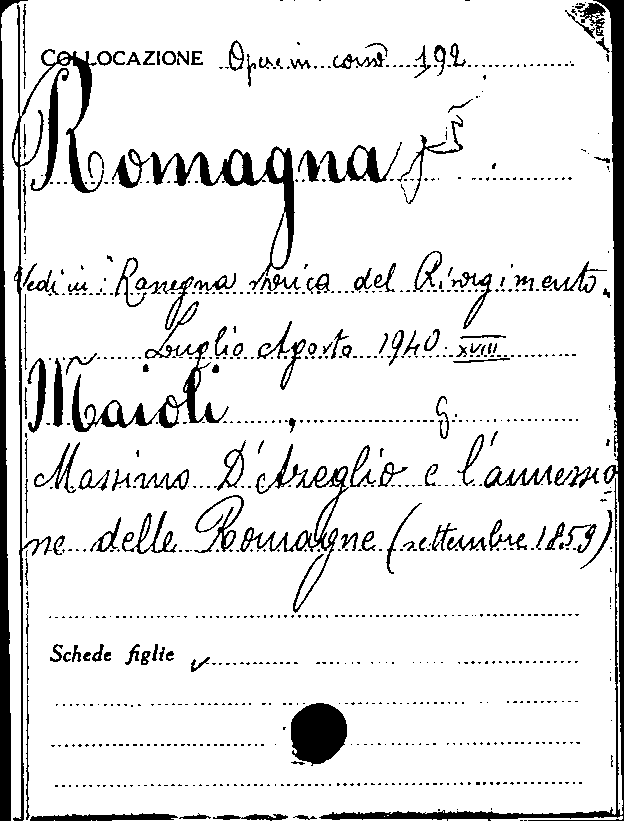 COLLOCAZIONE Opere in corso 192
Romagna
Vedi in: "Rassegna storica del Risorgimento.
Luglio Agosto 1940. XVIII
Maioli, G.
Massimo D'Azeglio e l'annessio
ne delle Romagne (settembre 1859)
Schede figlie